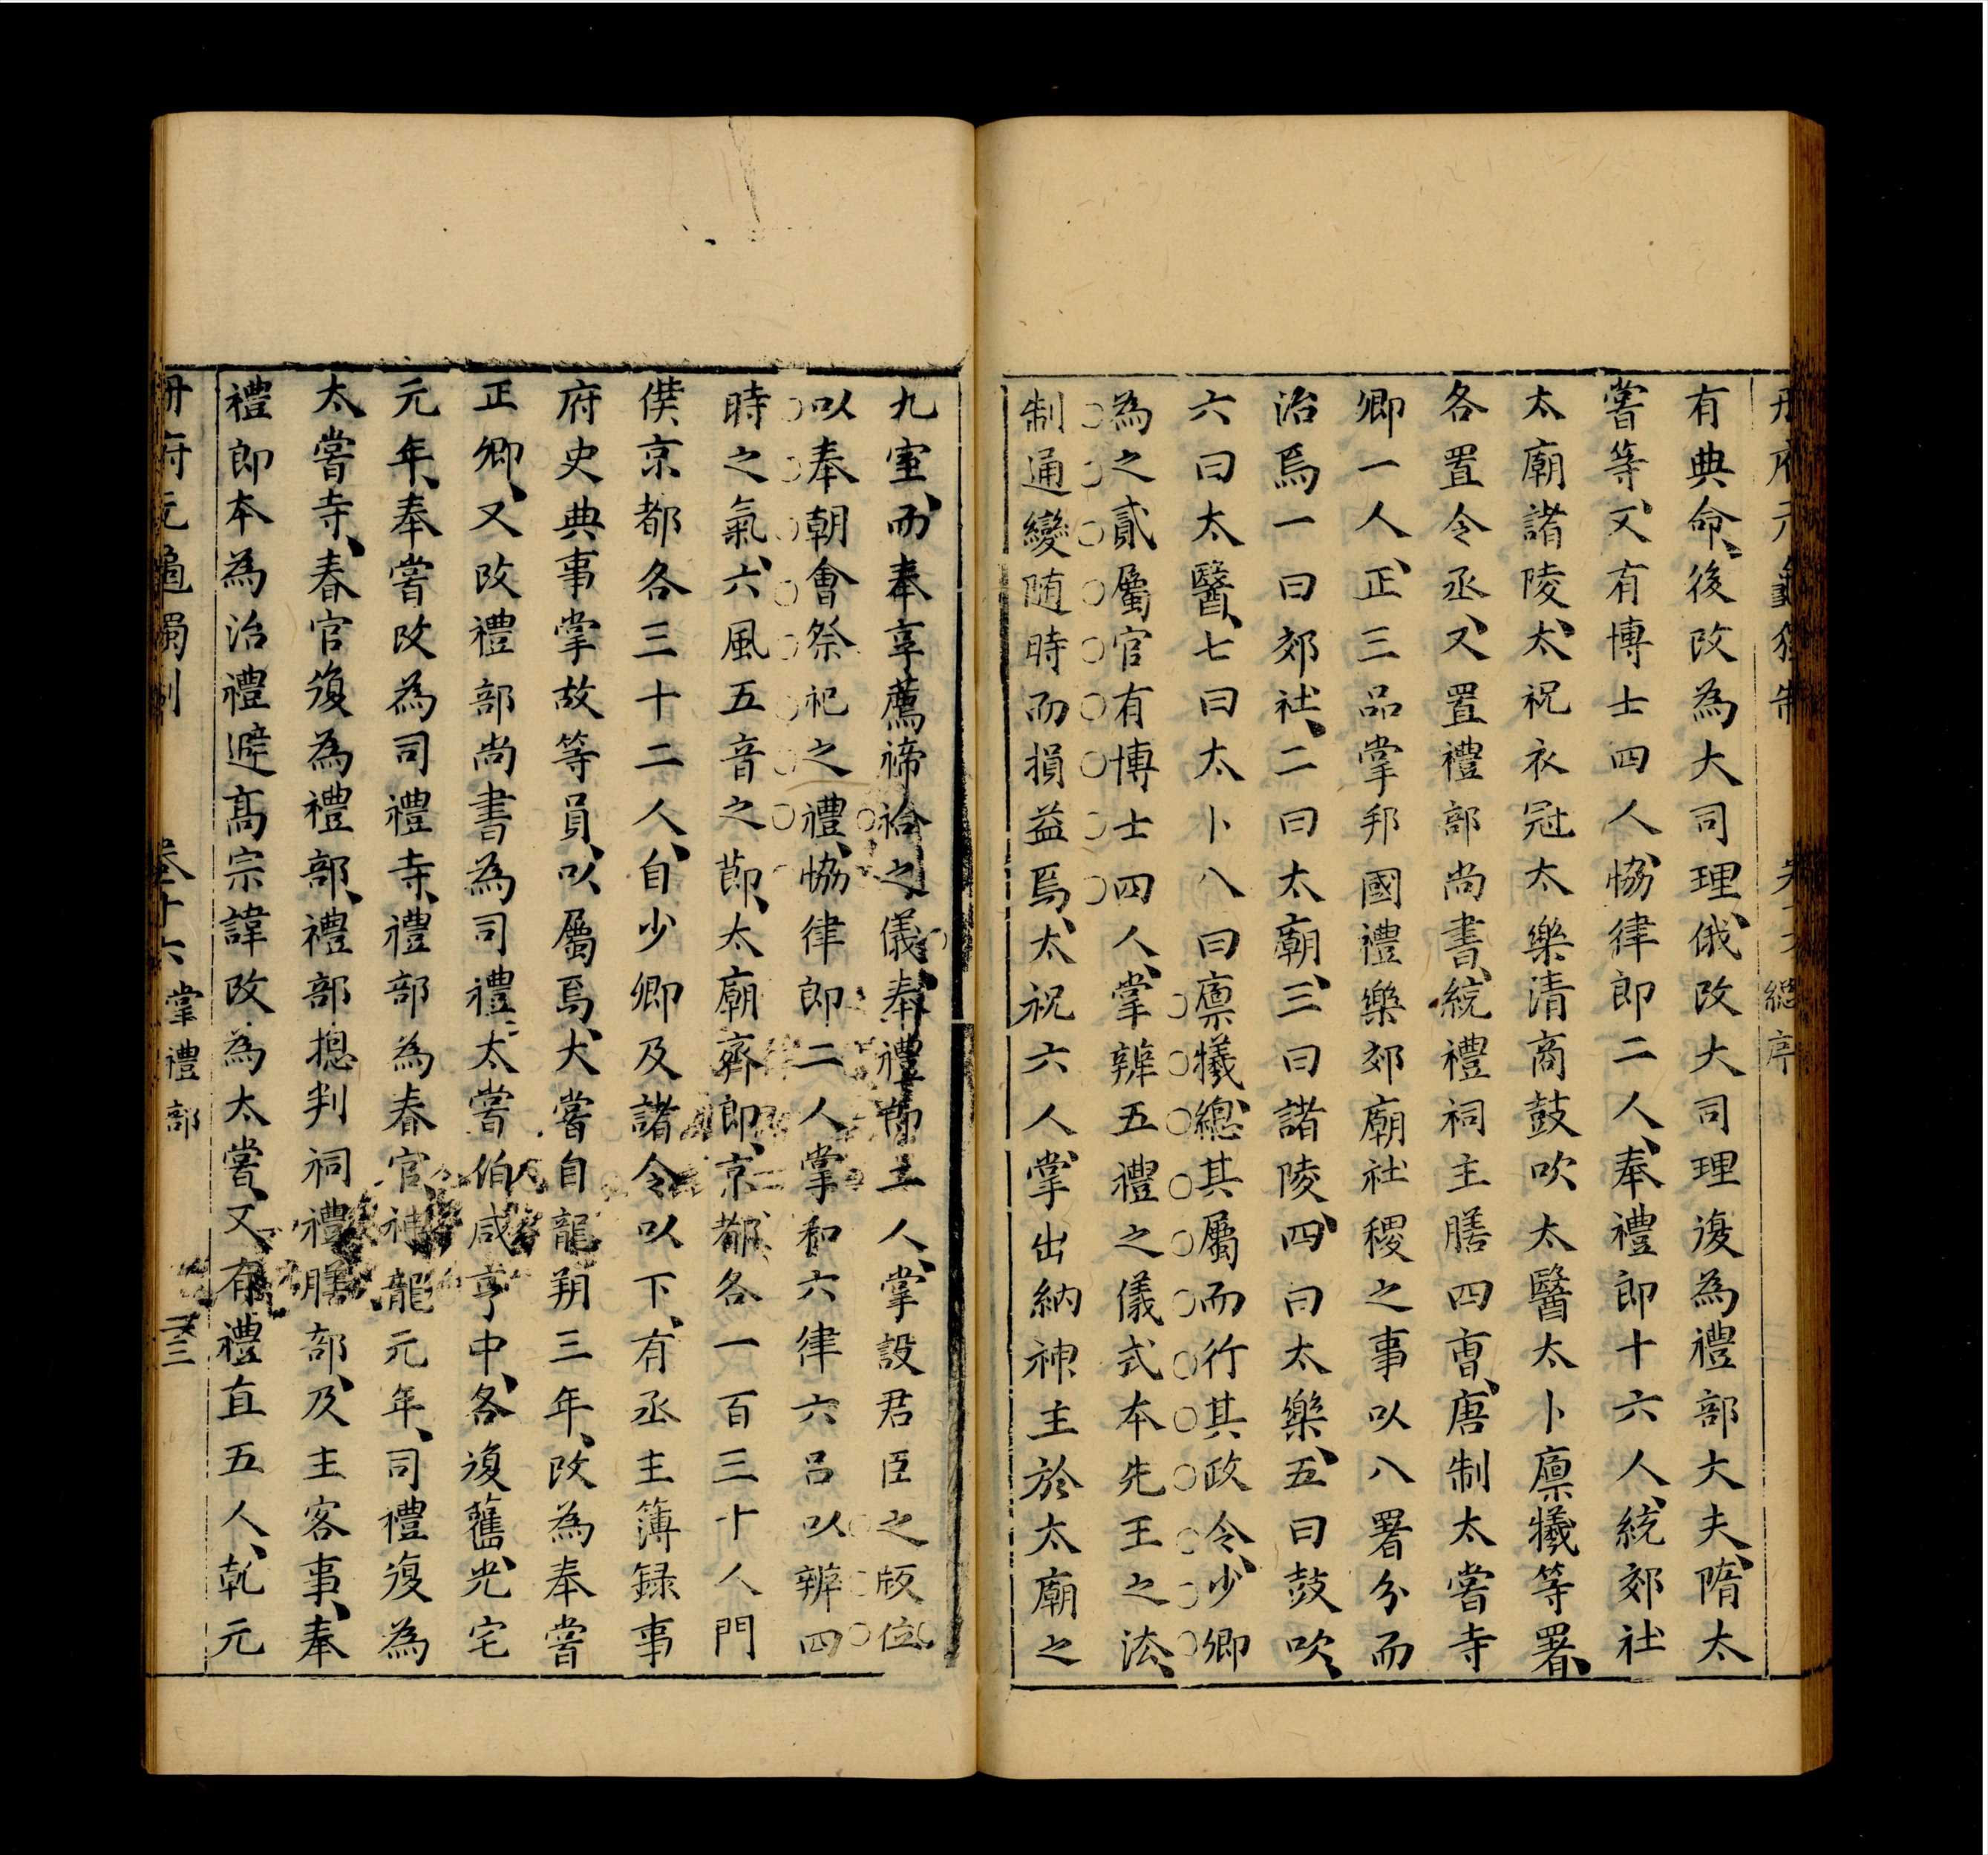 有典命後改為大司理俄改大司理復為禮部大夫隋太
嘗等又有博士四人恊律郎二人奉禮郎十六人統郊社
太廟諸陵太祝衣冠太樂清商鼓吹太醫太卜廪犧等署
各置令丞又置禮部尚書統禮祠主膳四曺唐制太嘗寺
卿一人正三品掌邦國禮樂郊廟社稷之事以八署分而
治焉一曰郊社二曰太廟三曰諸陵四曰太樂五曰鼓吹
六曰太醫七曰太卜八曰廪犧總其屬而行其政令少卿
為之貳屬官有博士四人掌辨五禮之儀式本先王之法
制通變随時而損益焉太祝六人掌出納神主於太廟之
九室而奉享薦禘祫之儀奉禮郎二人掌設君臣之版位
以奉朝會祭祀之禮恊律郎二人掌和六律六吕以辨四
時之氣六風五音之莭太廟齊郎京都各一百三十人門
僕京都各三十二人自少卿及諸令以下有丞主簿録事
府史典事掌故等員以屬焉太嘗自龍朔三年改為奉嘗
正卿又改禮部尚書為司禮太嘗伯咸亨中各復舊光宅
元年奉嘗改為司禮寺禮部為春官神龍元年司禮復為
太嘗寺春官復為禮部禮部揔判祠禮膳部及主客事奉
禮郎本為治禮避髙宗諱改為太嘗又有禮直五人乹元
冊府元龜獨制 卷十六 掌禮部 三